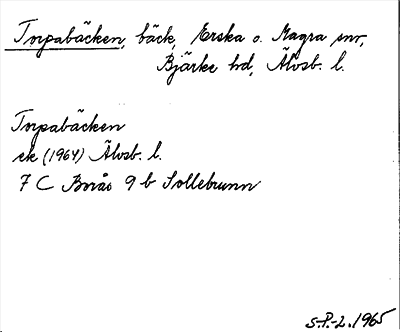 Torpabäcken, bäck, Erska o. Magra snr,
Bjärke hd, Älvsb. l.
Torpabäcken
ek (1964) Älvsb. l.
7 C Borås 9 b Sollebrunn
S-P.-L. 1965